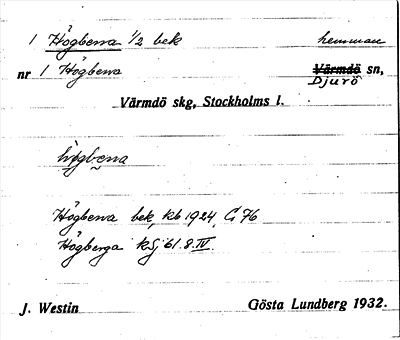 1 Högberra 1/2 bek hemman
nr 1 Högberra Värmdö sn,
Djurö
Värmdö skg, Stockholms l.
högbena
Högberra bek, Kb 1924, G 76
Högberga Kj. 61.8.IV.
J. Westin Gösta Lundberg 1932.